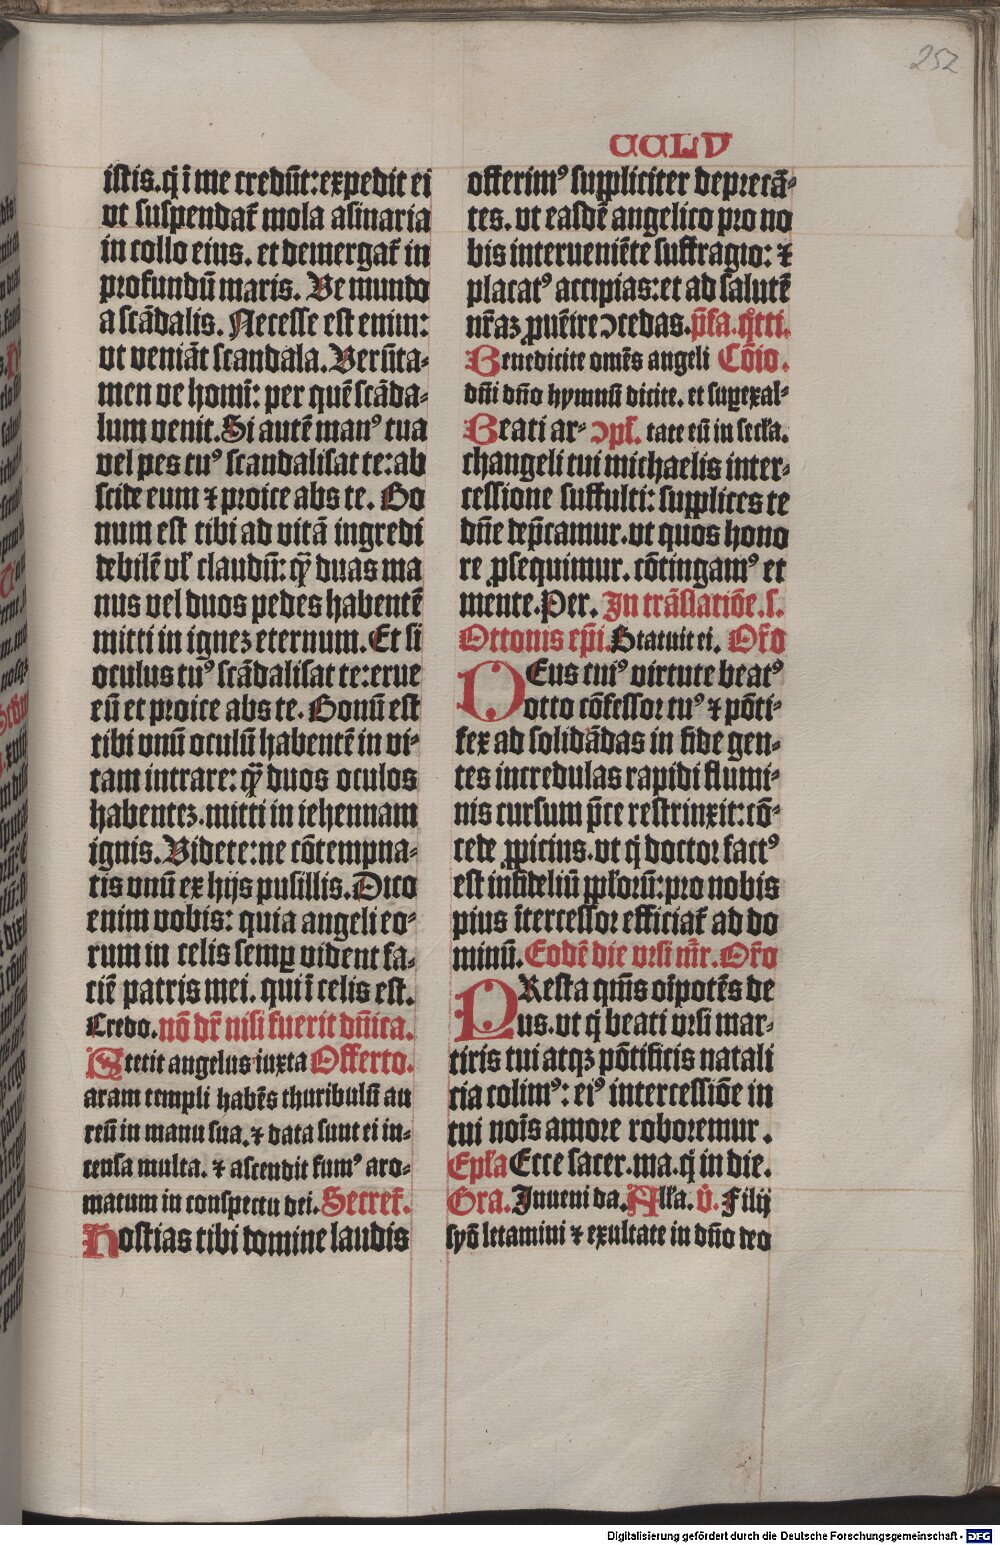 252
CCLV
istis. q̇ ī me credūt: expedit ei
vt suspendat᷑ mola asinaria
in collo eius. et demergat᷑ in
profundū maris. Ve mundo
a scādalis. Necesse est enim:
vt veniāt scandala. Verūta-
men ve homī: per quē scāda-
lum venit. Si autē manꝰ tua
vel pes tuꝰ scandalisat te: ab
scide eum ⁊ proice abs te. Bo
num est tibi ad vitā ingredi
debilē vl᷑ claudū: qꝫ̄ duas ma
nus vel duos pedes habentē
mitti in ignez eternum. Et si
oculus tuꝰ scādalisat te: erue
eū et proice abs te. Bonū est
tibi vnū oculū habentē in vi-
tam intrare: qꝫ̄ duos oculos
habentez. mitti in iehennam
ignis. Videte: ne cōtempna-
tis vnū ex hijs pusillis. Dico
enim vobis: quia angeli eo-
rum in celis semꝑ vident fa-
ciē patris mei. qui ī celis est.
Credo. nō dr̄ nisi fuerit dn̄ica.
Stetit angelus iuxta Offerto.
aram templi habēs thuribulū au
reū in manu sua. ⁊ data sunt ei in-
censa multa. ⁊ ascendit fumꝰ aro-
matum in conspectu dei. Secret᷑.
Hostias tibi domine laudis
offerimꝰ suppliciter deprecā-
tes. vt easdē angelico pro no
bis interueniēte suffragio: ⁊
placatꝰ accipias: et ad salutē
nr̄aꝫ ꝓuēire ↄcedas. p̄fa. q̊tti.
Benedicite om̄es angeli Cōio.
dn̄i dn̄o hymnū dicite. et suꝑexal-
Beati ar- ↄpl᷑. tate eū in secl᷑a.
changeli tui michaelis inter-
cessione suffulti: supplices te
dn̄e dep̄camur. vt quos hono
re ꝓsequimur. cōtingamꝰ et
mente. Per. In trāslatiōe. s.
Ottonis ep̄i. Statuit ei. Or̄o
DEus cuiꝰ virtute beatꝰ
otto cōfessor tuꝰ ⁊ pōti-
fex ad solidādas in fide gen-
tes incredulas rapidi flumi-
nis cursum p̄ce restrinxit: cō-
cede ꝓpicius. vt q̇ doctor factꝰ
est infideliū ppl᷑orū: pro nobis
pius ītercessor efficiat᷑ ad do
minū. Eodē die vrsi mr̄. Or̄o
PResta qm̄s oīpotēs de
us. vt q̇ beati vrsi mar-
tiris tui atqꝫ pōtificis natali
cia colimꝰ: eiꝰ intercessiōe in
tui noīs amore roboremur.
Epl᷑a Ecce sacer. ma. q̇ in die.
Gra. Inueni da. All᷑a. v̇. Filij
syō letamini ⁊ exultate in dn̄o deo
Digitalisierung gefördert durch die Deutsche Forschungsgemeinschaft - DFG